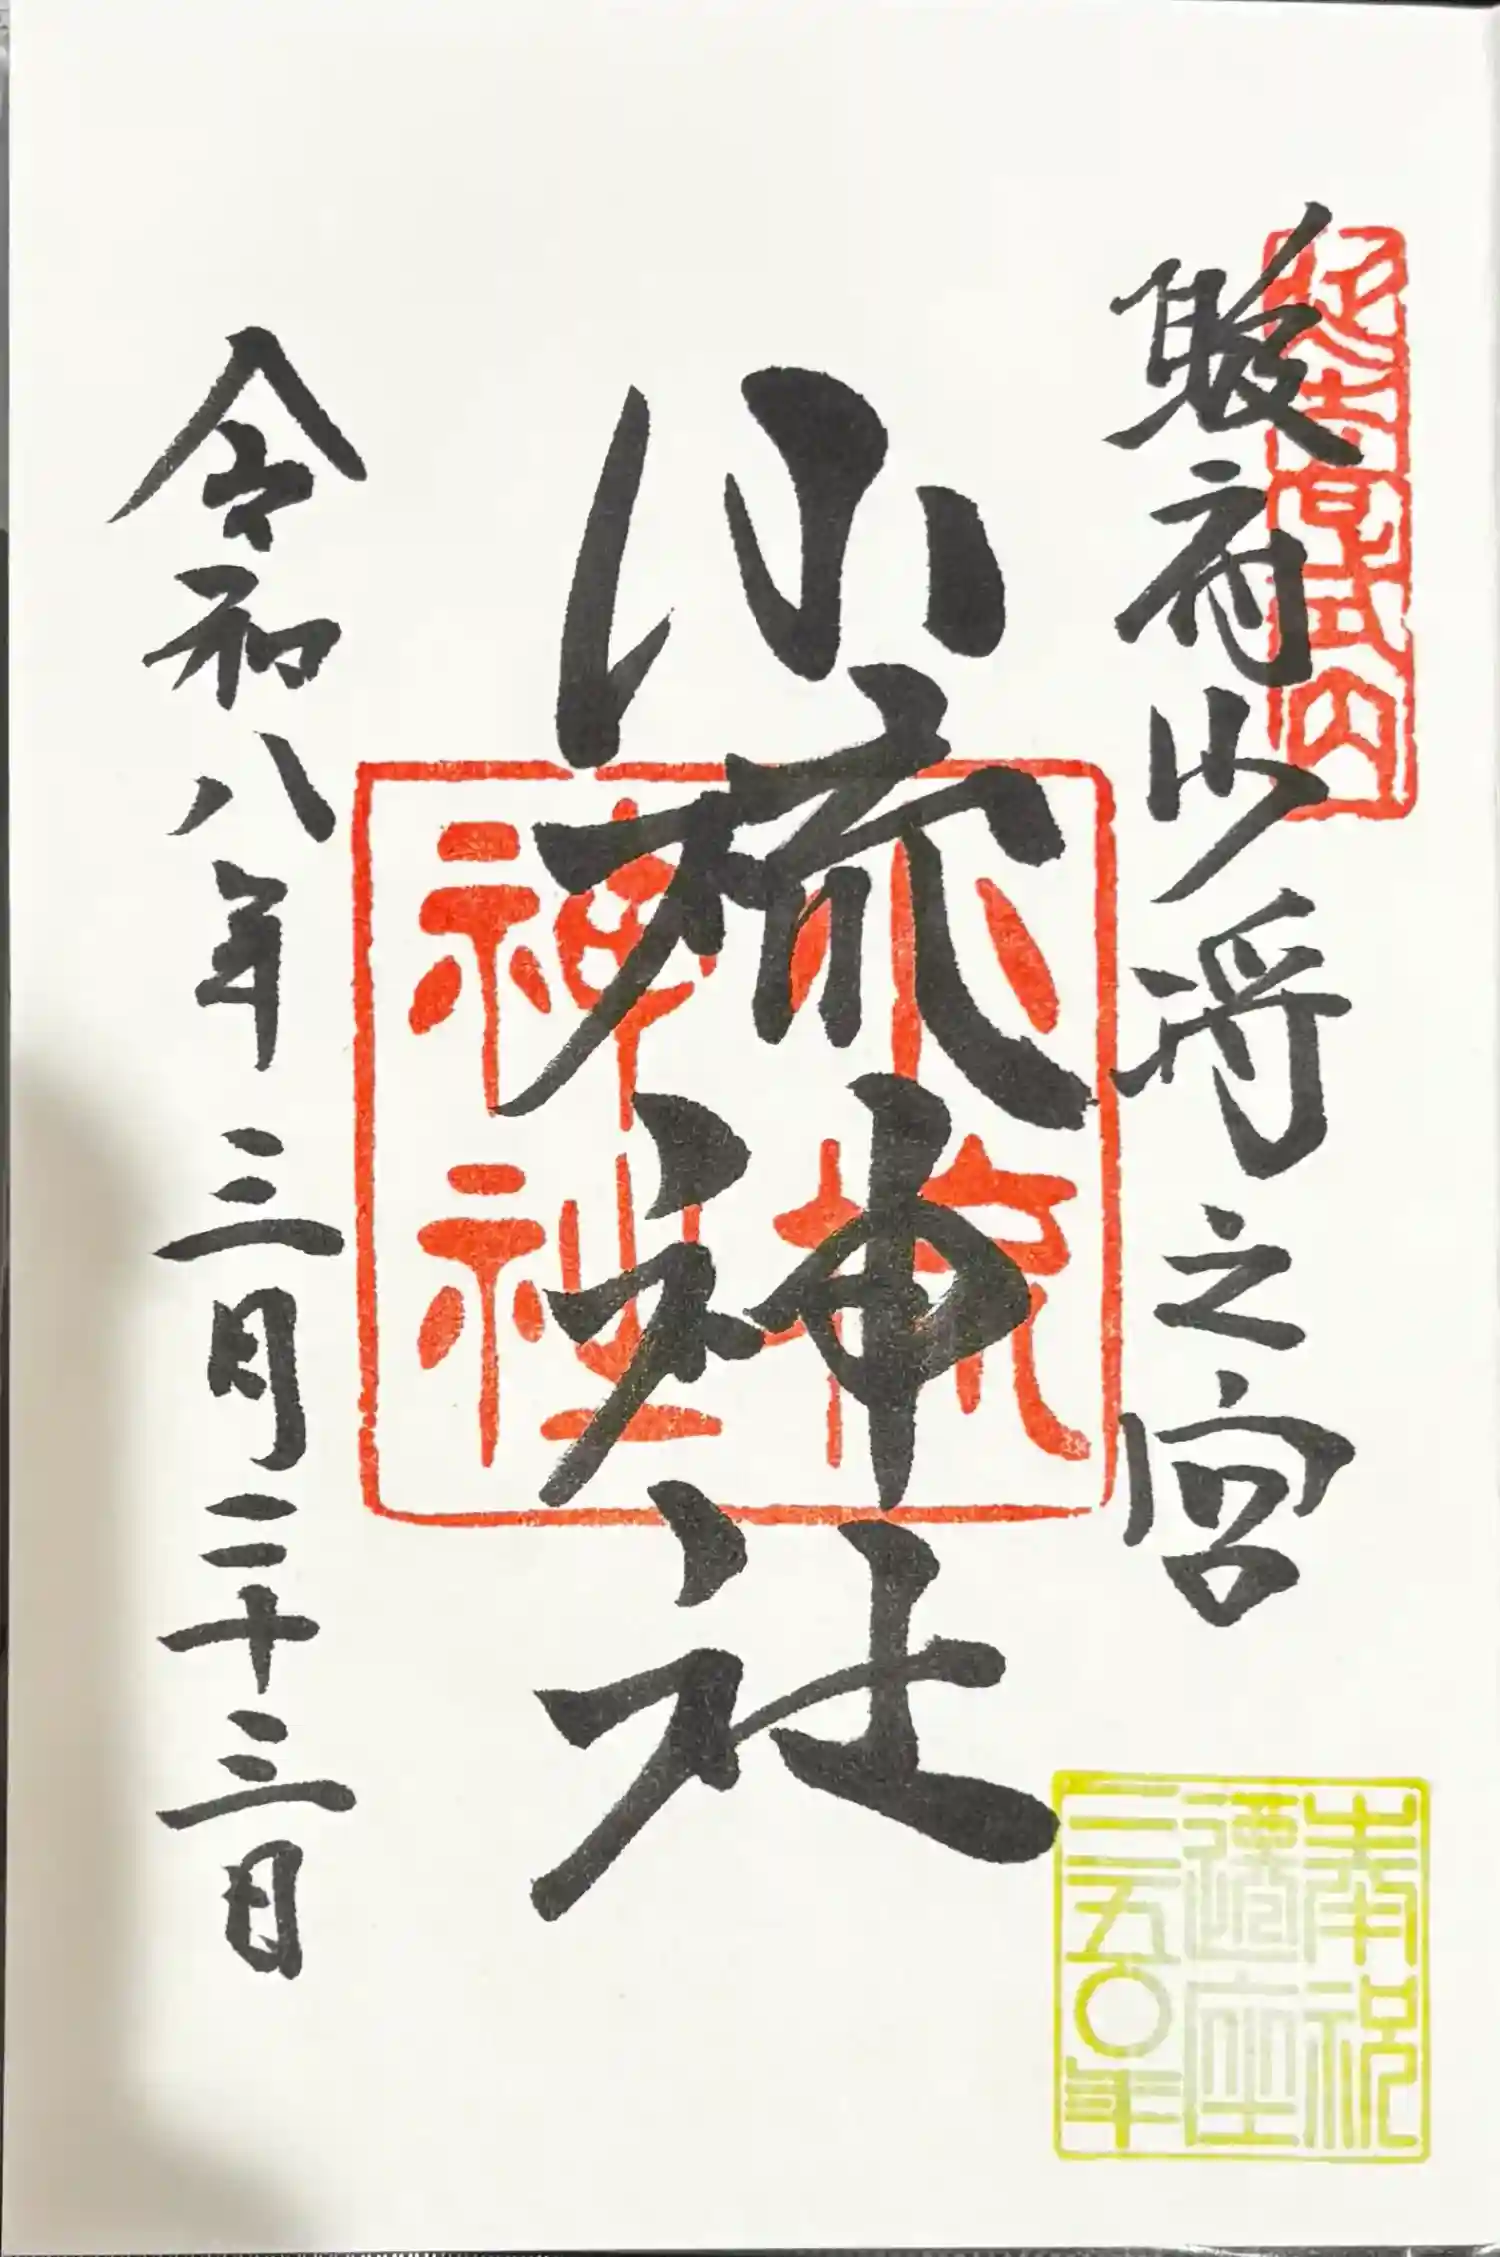 延喜式内
駿府少将之宮
小梳神社
小梳
神社
令和八年三月二十三日
奉祝
遷座
三五〇年